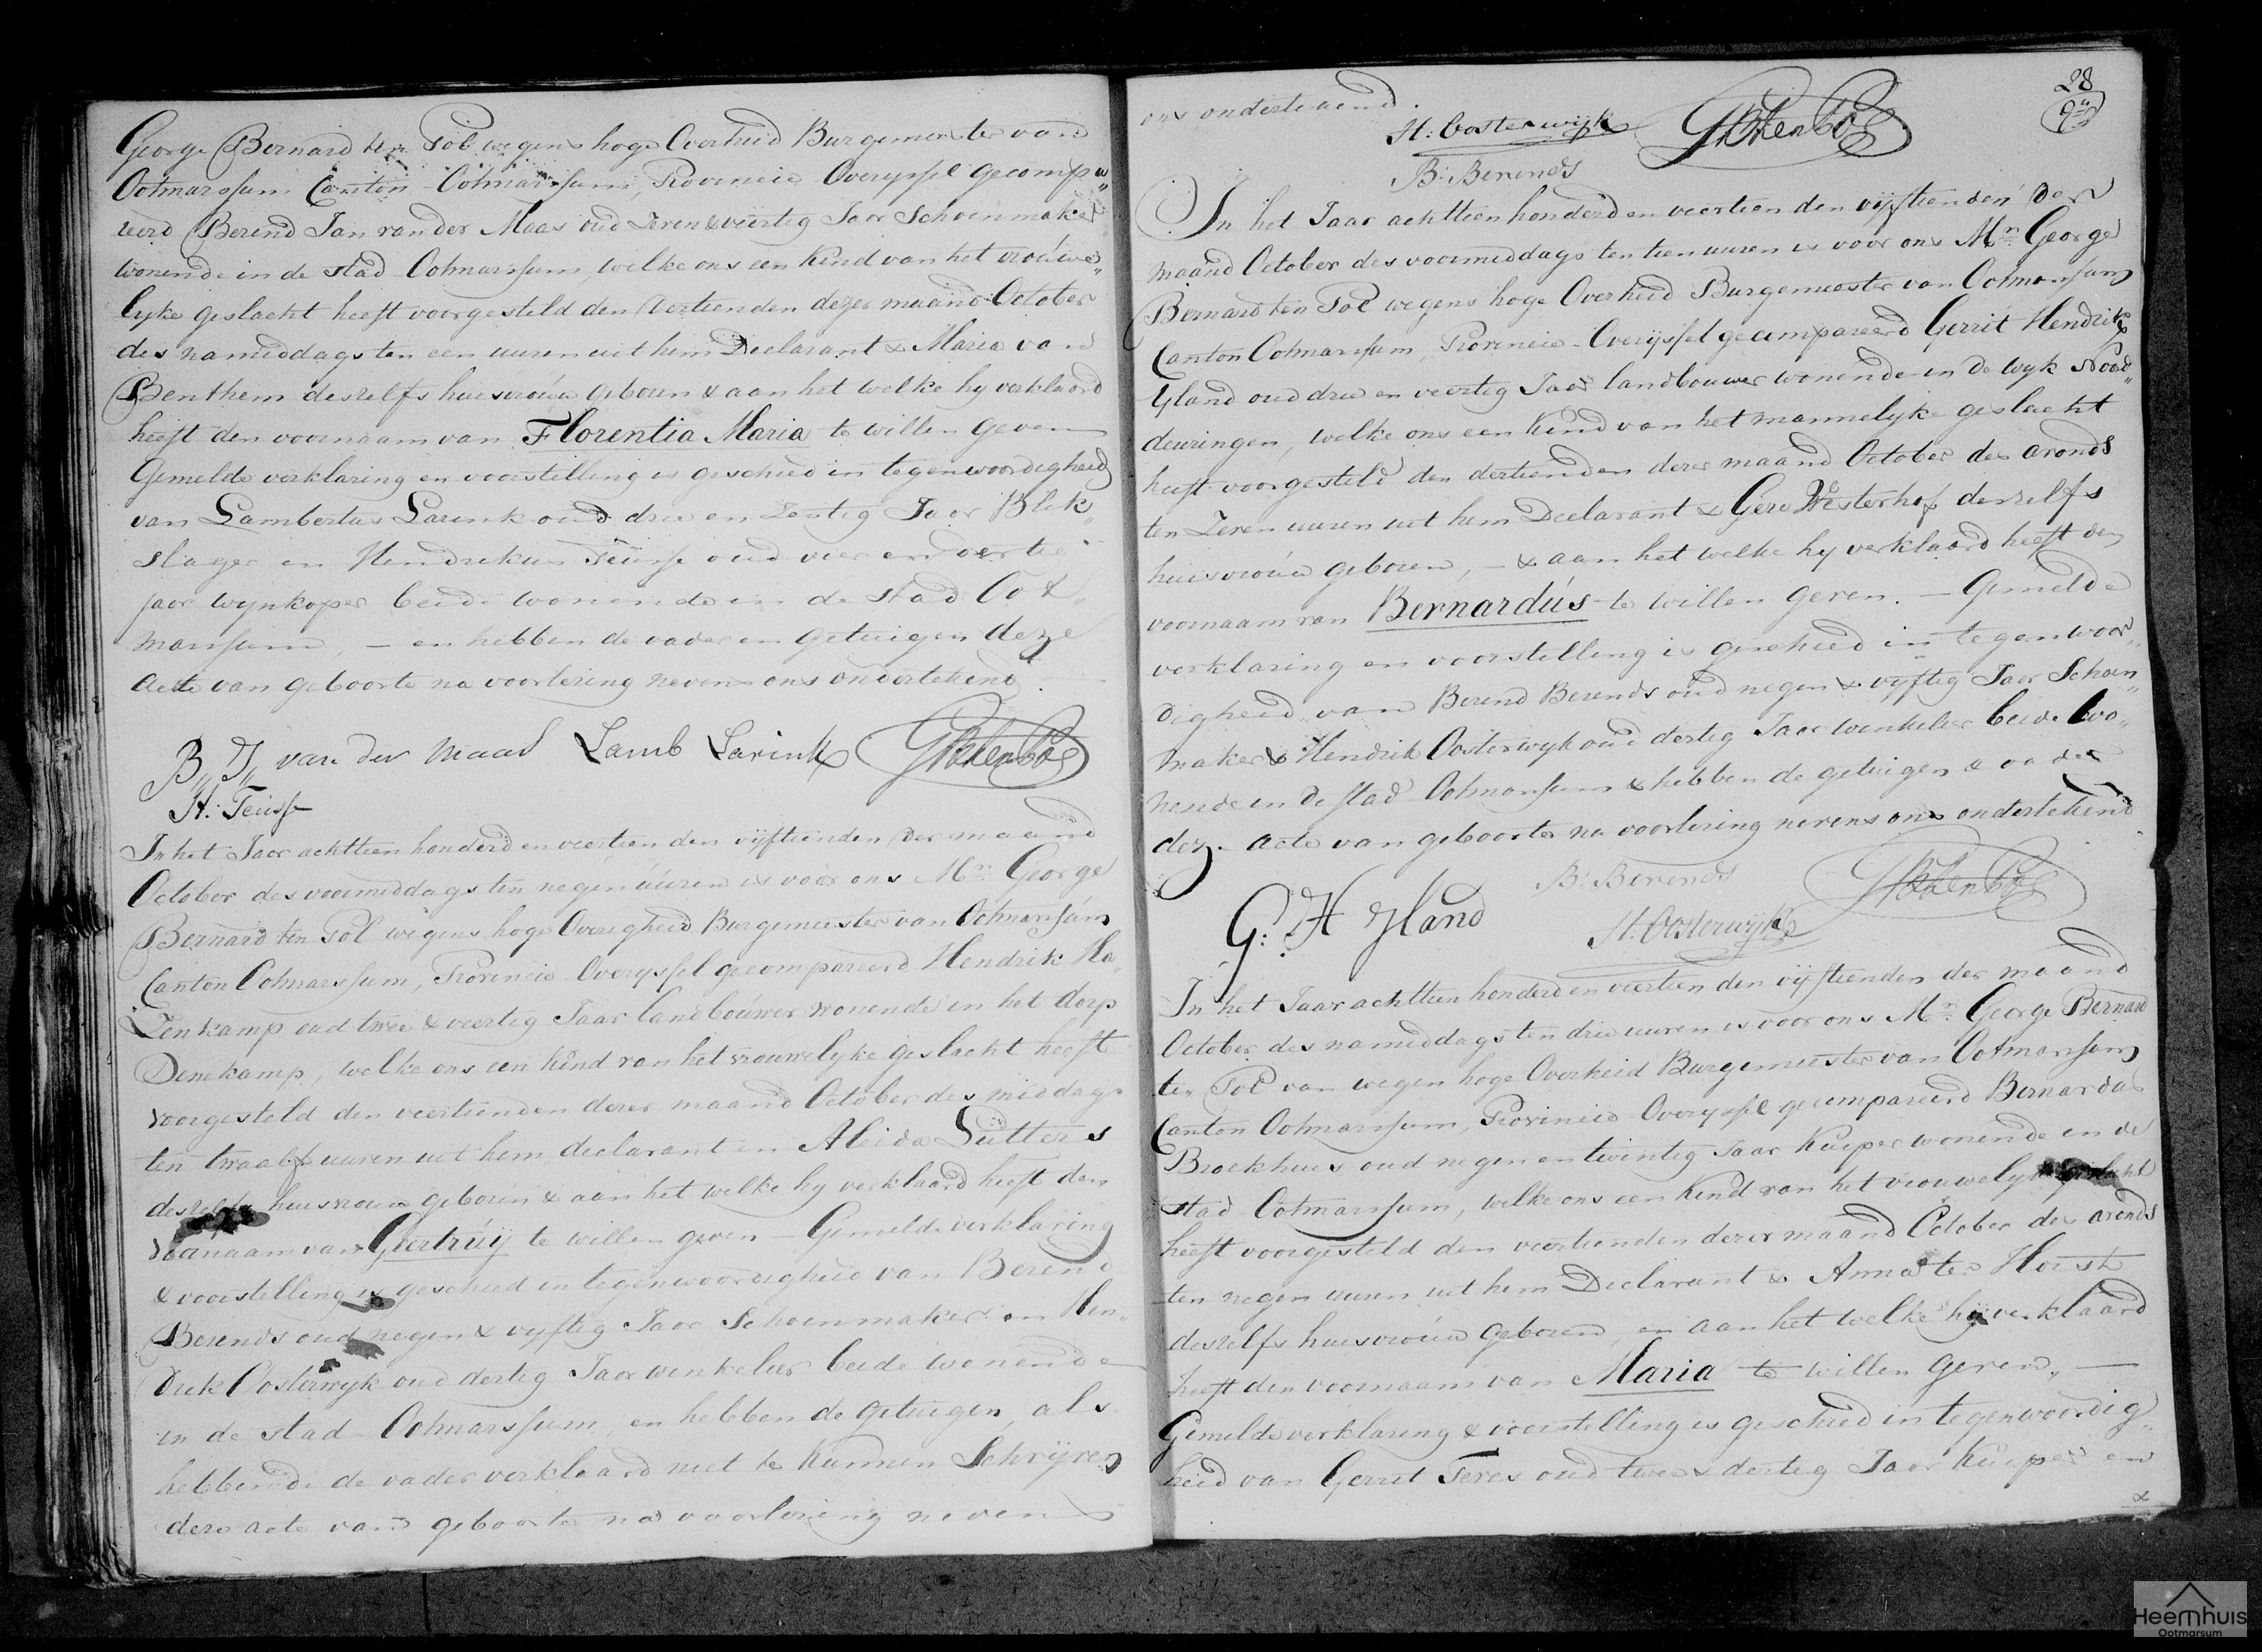 George Bernard ten Pol wegens hoge Overheid Burgemeester van
Ootmarssum Canton Ootmarssum, Provincie Overyssel gecompa„
reerd Berend Jan van der Maas oud Zeven & veertig Jaar Schoenmaker
wonende in de stad Ootmarssum, welke ons een Kind van het vrouwe„
lyke geslacht heeft voorgesteld den veertienden dezer maand October
des namiddags ten een uuren uit hem Declarant & Maria van
Benthem deszelfs huisvrouw geboren & aan het welke hy verklaard
heeft den voornaam van Florentia Maria te willen geven
Gemelde verklaring en voorstelling is geschied in tegenwoordigheid
van Lambertus Larink oud drie en Zestig Jaar Blik„
slager en Hendrikus Teusse oud vier en dertig
jaar wynkoper beide wonende in de stad Oot„
marssum, — en hebben de vader en getuigen deze
acte van geboorte na voorlezing nevens ons ondertekend.
B„ J„ van der Maas Lamb Larink GBtenPol
H: Teusse
In het Jaar achttien honderd en veertien den vyftienden der maand
October des voormiddags ten negen uuren is voor ons Mr. George
Bernard ten Pol wegens hoge Overigheid Burgemeester van Ootmarssum
Canton Ootmarssum, Provincie Overyssel gecompareerd Hendrik Ha„
Zenkamp oud twee & veertig Jaar landbouwer wonende in het dorp
Denekamp, welke ons een kind van het vrouwelyke geslacht heeft
voorgesteld den veertienden dezer maand October des middags
ten twaalf uuren uit hem declarant en Aleida Lutters
deszelfs huisvrouw geboren & aan het welke hy verklaard heeft den
voornaam van Geertruij te willen geven — Gemelde verklaring
& voorstelling is geschied in tegenwoordigheid van Berend
Berends oud negen & vyftig Jaar Schoenmaker en Hen„
drik Oosterwyk oud dertig Jaar winkelier beide wonende
in de stad Ootmarssum, en hebben de getuigen, als
hebbende de vader verklaard niet te kunnen Schrijven
deze acte van geboorte na voorlezing nevens
28
9e
ons ondertekend.
H: Oosterwijk GBtenPol
B: Berends
In het Jaar achttien honderd en veertien den vijftienden der
maand October des voormiddags ten tien uuren is voor ons Mr. George
Bernard ten Pol wegens hoge Overheid Burgemeester van Ootmarssum
Canton Ootmarssum, Provincie Overijssel gecompareerd Gerrit Hendrik
Yland oud drie en veertig Jaar landbouwer wonende in de wyk Nood„
deuringen, welke ons een Kind van het mannelyke geslacht
heeft voorgesteld den dertienden dezer maand October des avonds
ten Zeven uuren uit hem Declarant & Gese Westerhof deszelfs
huisvrouw geboren, — & aan het welke hy verklaard heeft den
voornaam van Bernardus te willen geven. — Gemelde
verklaring en voorstelling is geschied in tegenwoor„
digheid van Berend Berends oud negen & vyftig Jaar Schoen„
maker & Hendrik Oosterwyk oud dertig Jaar winkelier beide wo„
nende in de stad Ootmarssum & hebben de getuigen & vader
deze acte van geboorte na voorlezing nevens ons ondertekend
B: Berends GBtenPol
G: H Yland H: Oosterwijk
In het Jaar achttien honderd en veertien den vijftienden der maand
October des namiddags ten drie uuren is voor ons Mr. George Bernard
ten Pol van wegen hoge Overheid Burgemeester van Ootmarssum
Canton Ootmarssum, Provincie Overyssel gecompareerd Bernardus
Broekhuis oud negen en twintig Jaar Kuiper wonende in de
stad Ootmarssum, welke ons een Kind van het vrouwelyk geslacht
heeft voorgesteld den veertienden dezer maand October des avonds
ten negen uuren uit hem Declarant & Anna ter Horst
deszelfs huisvrouw geboren, en aan het welke hy verklaard
heeft den voornaam van Maria te willen geven. —
Gemelde verklaring & voorstelling is geschied in tegenwoordig„
heid van Gerrit oud twee & dertig Jaar Kuiper en
Heemhuis
Ootmarsum